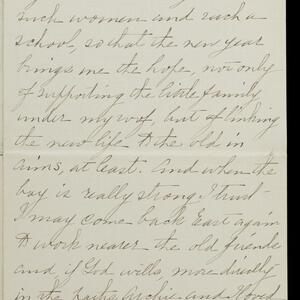 such women and such a
school, so that the new year
brings me the hope, not only
of supporting the little family
under my roof, but of linking
the new life to the old in
aims, at least. And when the
boy is really strong I trust
I may come back East again
to work nearer the old friends
and, if God wills, more directly
in the paths Archie and I loved